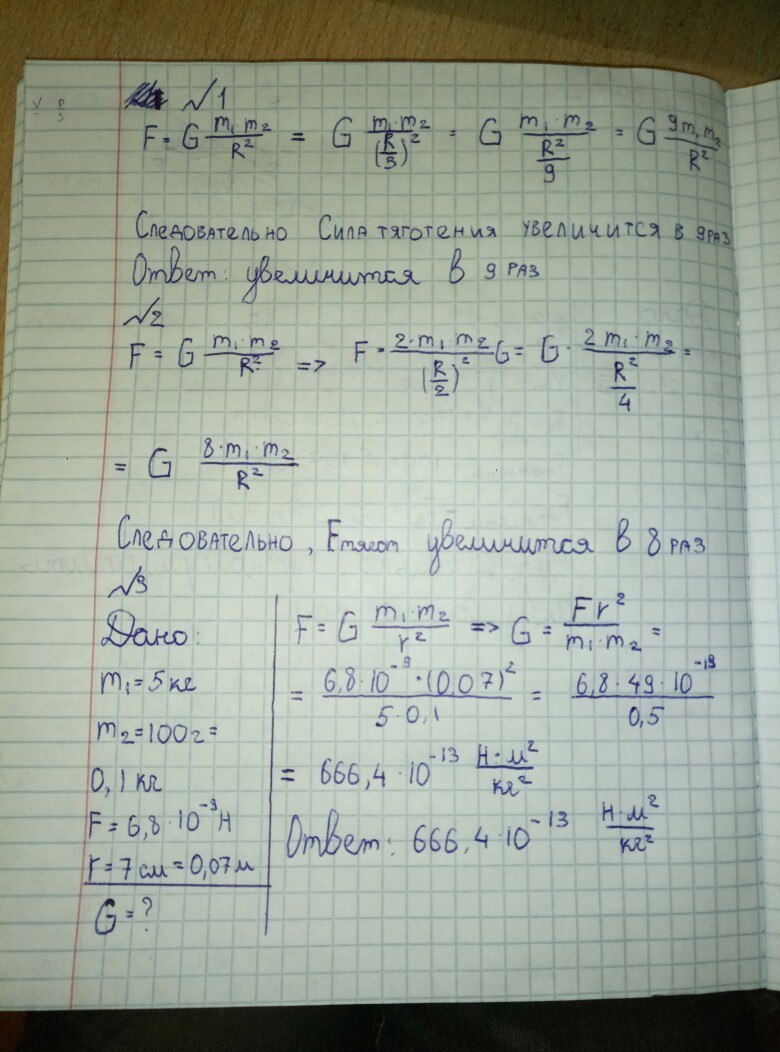 √1
F = G m₁·m₂/R² = G m₁·m₂/(R/3)² = G m₁·m₂/(R²/9) = G 9m₁m₂/R²
Следовательно Сила тяготения увеличится в 9 раз
Ответ: увеличится в 9 раз
√2
F = G m₁·m₂/R² => F = 2·m₁·m₂/(R/2)² G = G · 2m₁·m₂/(R²/4) =
= G 8·m₁·m₂/R²
Следовательно, Fтягот увеличится в 8 раз
√3
Дано:
m₁=5кг
m₂=100г=
0,1кг
F=6,8·10⁻⁹Н
r=7см=0,07м
G=?
F = G m₁·m₂/r² => G = Fr²/m₁·m₂ =
= 6,8·10⁻⁹·(0,07)²/5·0,1 = 6,8·49·10⁻¹³/0,5
= 666,4·10⁻¹³ Н·м²/кг²
Ответ: 666,4·10⁻¹³ Н·м²/кг²